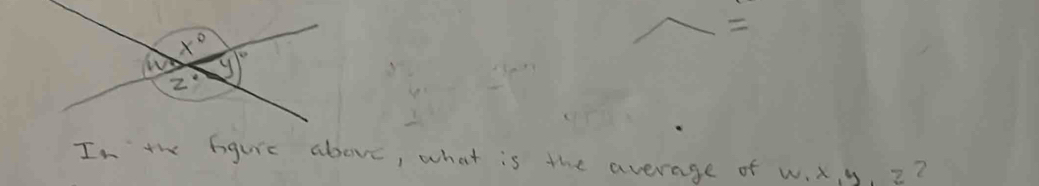 x°
w y°
z°
=
In the figure above, what is the average of w, x, y, z?